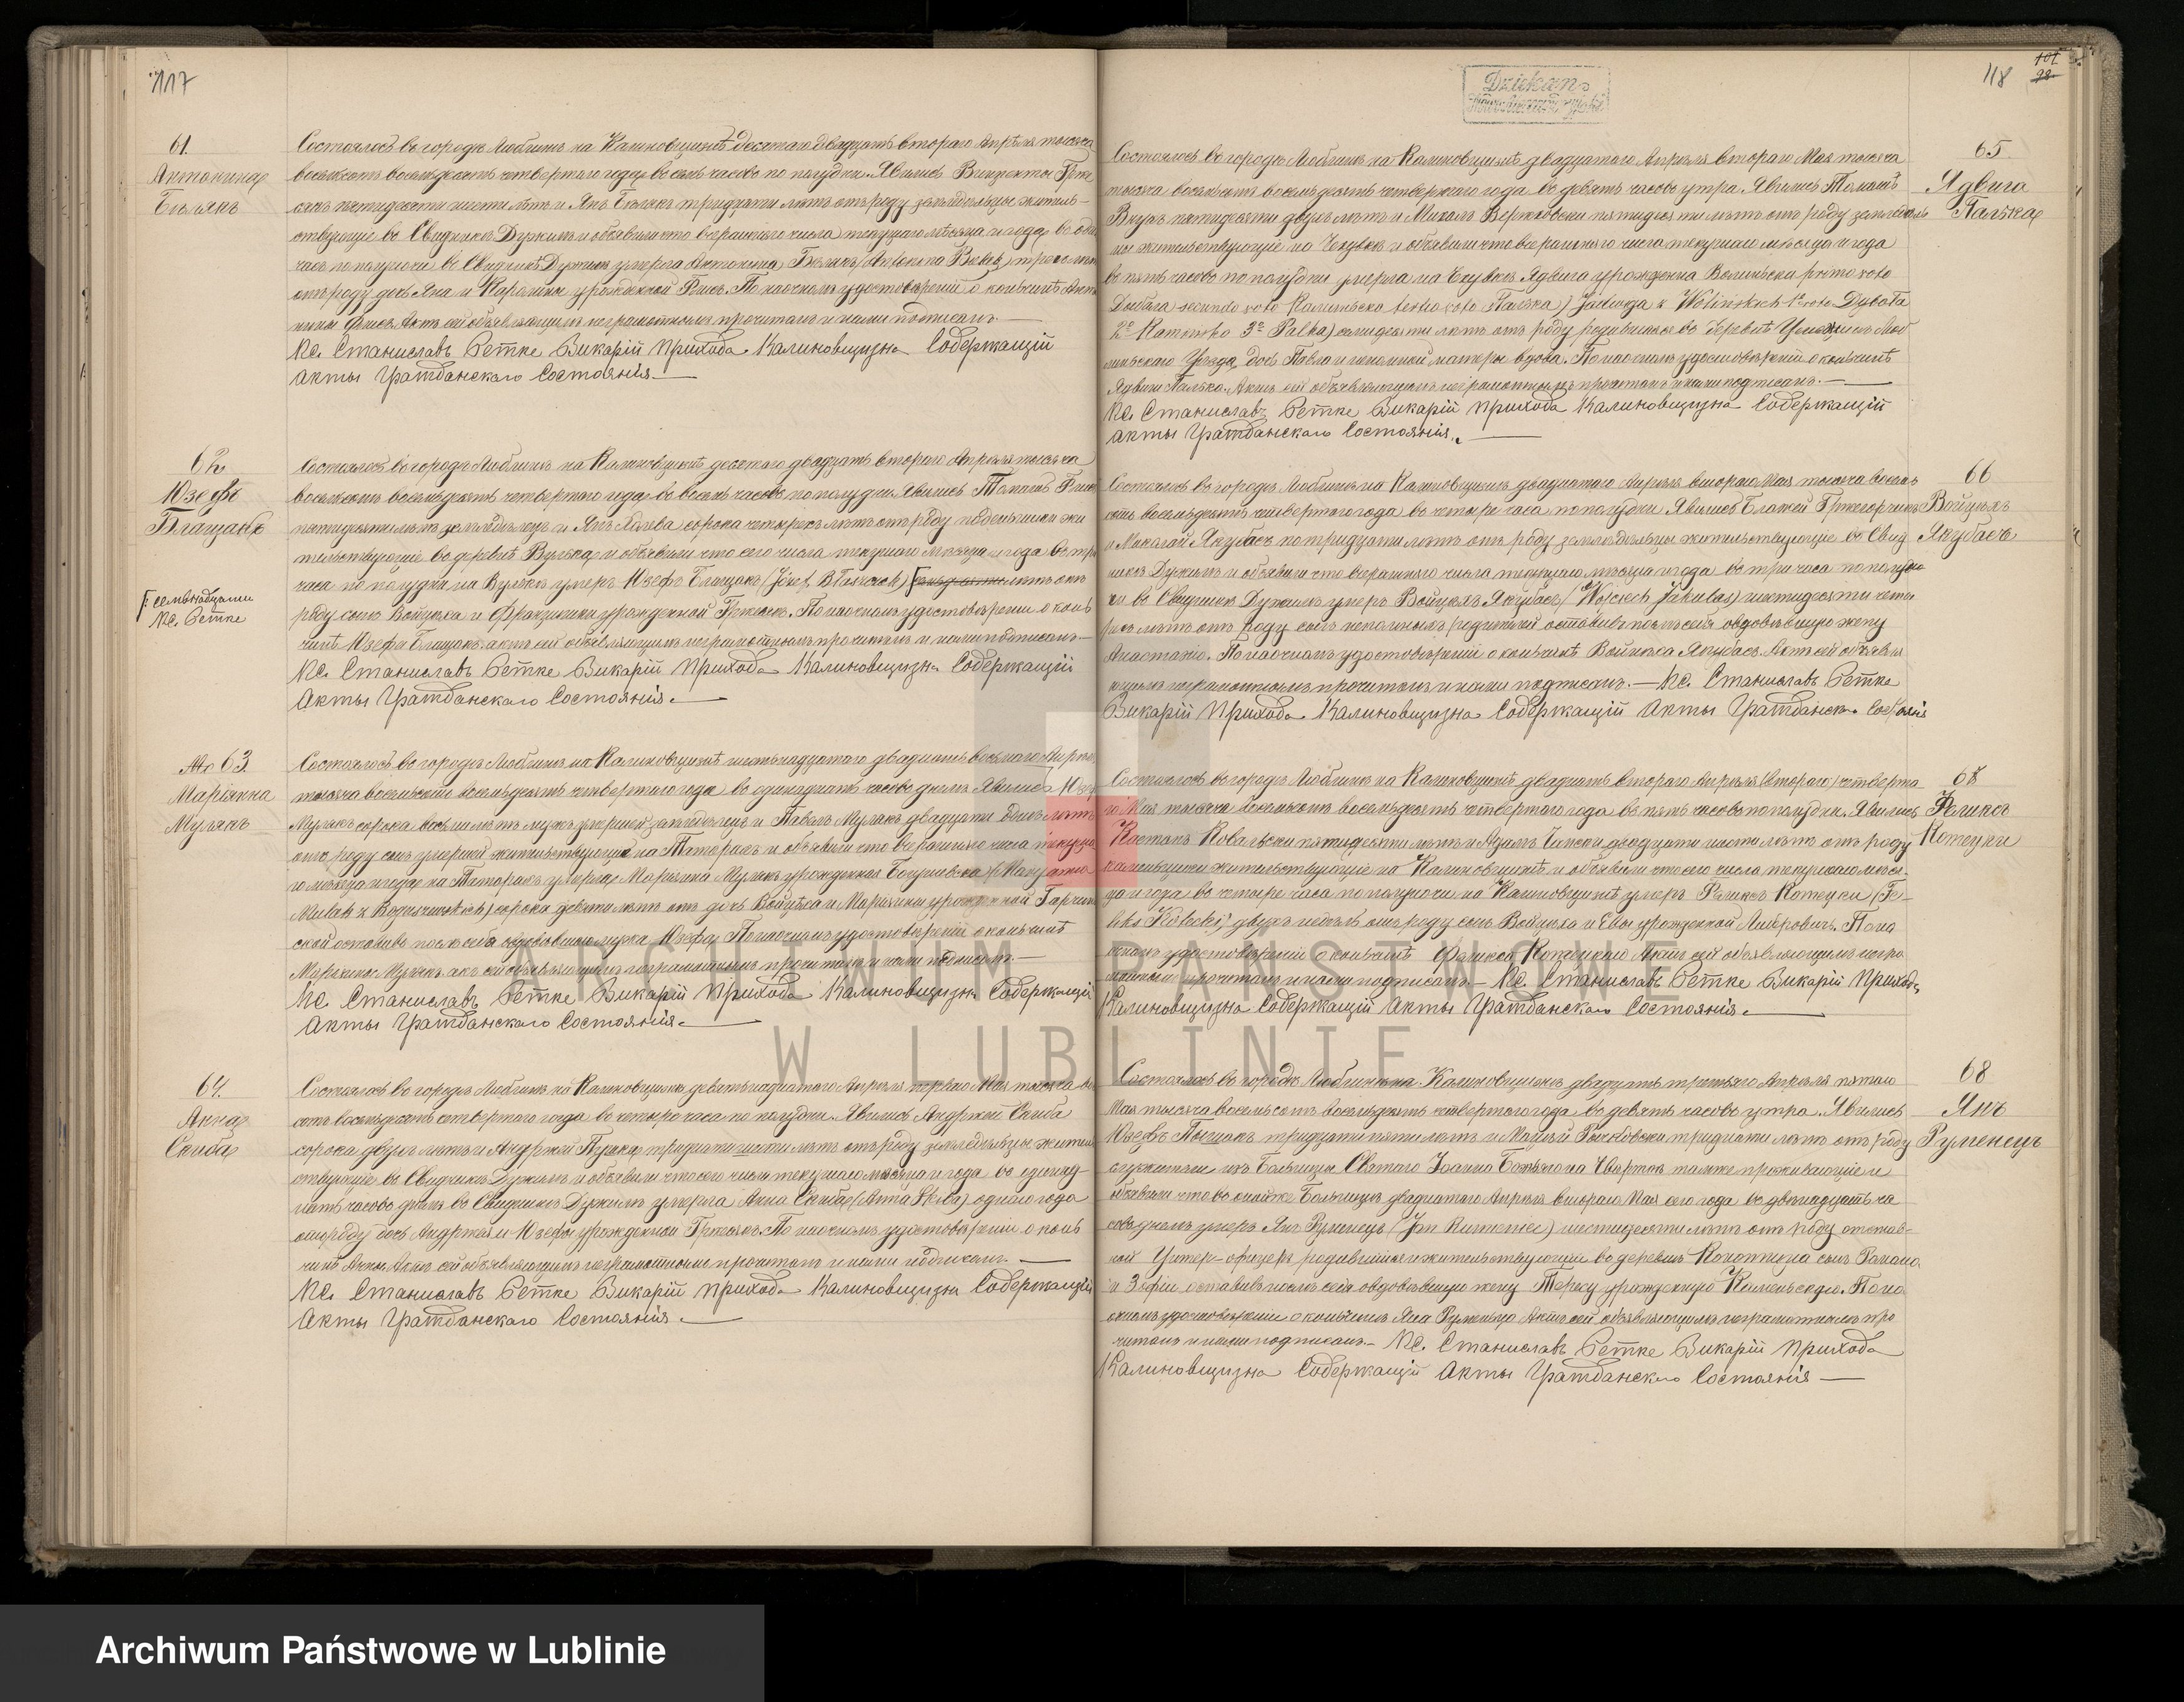 117
61.
Антонина
Бѣлякъ
Состоялось въ городѣ Люблинѣ на Калиновщизнѣ десятаго двадцать втораго Апрѣля тысяча
восемьсотъ восемьдесятъ четвертаго года въ семь часовъ по полудни. Явились Викентій
шести лѣтъ и Янъ Бѣлякъ тридцати лѣтъ отъ роду земледѣльцы житель-
ствующіе въ Свидникѣ Дужимъ и объявили что вчерашняго числа текущаго мѣсяца и года въ
часъ по полуночи въ Свидникѣ Дужимъ умерла Антонина Бѣлякъ (Antonina Bielak) трехъ лѣтъ
отъ роду дочь Яна и Каролины урожденной. По наочномъ удостовѣреніи о кончинѣ Анто
нины Актъ сей объявляющимъ неграмотнымъ прочитанъ и нами подписанъ.—
Кс. Станиславъ Реткe Викарій Прихода Калиновщизна Содержащій
Акты Гражданскаго Состоянія.—
62
Юзефъ
Блащакъ
[: семьнадцати
Кс. Реткe
Состоялось въ городѣ Люблинѣ на Калиновщизнѣ десятаго двадцать втораго Апрѣля тысяча
восемьсотъ восемьдесятъ четвертаго года въ восемь часовъ по полудни. Явились Томашъ
пятидесяти лѣтъ земледѣлецъ и Янъ Халева сорока четырехъ лѣтъ отъ роду поденьщики жи
тельствующіе въ деревнѣ Вулька и объявили что сего числа текущаго мѣсяца и года въ три
часа по полудни на Вулькѣ умеръ Юзефъ Блащакъ (Józef Błaszczak) лѣтъ отъ
роду сынъ Войцѣха и Францишки урожденной. По наочномъ удостовѣреніи о кон
чинѣ Юзефа Блащакъ актъ сей объявляющимъ неграмотнымъ прочитанъ и нами подписанъ—
Кс. Станиславъ Реткe Викарій Прихода Калиновщизна Содержащій
Акты Гражданскаго Состоянія.—
№ 63.
Маріянна
Мулякъ
Состоялось въ городѣ Люблинѣ на Калиновщизнѣ шестьнадцатаго двадцать восьмаго Апрѣля
тысяча восемьсотъ восемьдесятъ четвертаго года въ одинадцать часовъ днемъ. Явились Юзефъ
Мулякъ сорока восьми лѣтъ мужъ умершей земледѣлецъ и Павелъ Мулякъ двадцати лѣтъ
отъ роду сынъ умершей жительствующіе на Татарахъ и объявили что вчерашняго числа текуща
го мѣсяца и года на Татарахъ умерла Маріянна Мулякъ урожденная (Maryanna
Mulak z) сорока девяти лѣтъ отъ дочь Войцѣха и Маріянны урожденной
ской оставивъ послѣ себя овдовѣвшаго мужа Юзефа. По наочномъ удостовѣреніи о кончинѣ
Маріянны Мулякъ актъ сей объявляющимъ неграмотнымъ прочитанъ и нами подписанъ.—
Кс. Станиславъ Реткe Викарій Прихода Калиновщизна Содержащій
Акты Гражданскаго Состоянія.—
64.
Анна
Скиба
Состоялось въ городѣ Люблинѣ на Калиновщизнѣ девятьнадцатаго Апрѣля перваго Мая тысяча во
сотъ восемьдесятъ четвертаго года въ четыре часа по полудни. Явились Андржей Скиба
сорока двухъ лѣтъ и Андржей тридцати шести лѣтъ отъ роду земледѣльцы житель
ствующіе въ Свидникѣ Дужимъ и объявили что сего числа текущаго мѣсяца и года въ одинад-
цать часовъ днемъ въ Свидникѣ Дужимъ умерла Анна Скиба (Anna Skiba) одного года
отъ роду дочь Андржея и Юзефы урожденной. По наочномъ удостовѣреніи о кон
чинѣ Анны Актъ сей объявляющимъ неграмотнымъ прочитанъ и нами подписанъ.—
Кс. Станиславъ Реткe Викарій Прихода Калиновщизна Содержащій
Акты Гражданскаго Состоянія.—
118
101
98
Dziekan
65
Ядвига
Палька
Состоялось въ городѣ Люблинѣ на Калиновщизнѣ двадцатаго Апрѣля втораго Мая тысяча
тысяча восемьсотъ восемьдесятъ четвертаго года въ девять часовъ утра. Явились Томашъ
пятидесяти двухъ лѣтъ и Михалъ Вержховски пятидесяти лѣтъ отъ роду земледѣль
цы жительствующіе на Чехувкѣ и объявили что вчерашняго числа текущаго мѣсяца и года
въ пять часовъ по полудни умерла на Чехувкѣ Ядвига урожденна Волиньска primo voto
secundo voto tertio voto Палька) Jadwiga z Wolińskich 1º voto
2º 3º Palka) семидесяти лѣтъ отъ роду родившаяся въ деревнѣ Люб
линьскаго Уѣзда, дочь Павла и незнаемой матери вдова. По наочномъ удостовѣреніи о кончинѣ
Ядвиги Палька. Актъ сей объявляющимъ неграмотнымъ прочитанъ и нами подписанъ.—
Кс. Станиславъ Реткe Викарій Прихода Калиновщизна Содержащій
Акты Гражданскаго Состоянія.—
66
Войцѣхъ
Якубасъ
Состоялось въ городѣ Люблинѣ на Калиновщизнѣ двадцатаго Апрѣля втораго Мая тысяча восемь
сотъ восемьдесятъ четвертаго года въ четыре часа по полудни. Явились Блажей Гржегорчикъ
и Миколай Якубасъ по тридцати лѣтъ отъ роду земледѣльцы жительствующіе въ Свид
никѣ Дужимъ и объявили что вчерашняго числа текущаго мѣсяца и года въ три часа по полуно
чи въ Свидникѣ Дужимъ умеръ Войцѣхъ Якубасъ (Wojciech Jakubas) шестидесяти четы
рехъ лѣтъ отъ роду сынъ непомныхъ родителей оставивъ послѣ себя овдовѣвшую жену
Анастазію. По наочномъ удостовѣреніи о кончинѣ Войцѣха Якубасъ Актъ сей объявля
ющимъ неграмотнымъ прочитанъ и нами подписанъ.— Кс. Станиславъ Реткe
Викарій Прихода Калиновщизна Содержащій Акты Гражданскаго Состоянія
67
Феликсъ
Котецки
Состоялось въ городѣ Люблинѣ на Калиновщизнѣ двадцать втораго Апрѣля (втораго) четверта
го Мая тысяча восемьсотъ восемьдесятъ четвертаго года въ пять часовъ по полудни. Явились
Каэтанъ Ковальски пятидесяти лѣтъ и Адамъ двадцати шести лѣтъ отъ роду
каменьщики жительствующіе на Калиновщизнѣ и объявили что сего числа текущаго мѣся-
ца и года въ четыре часа по полуночи на Калиновщизнѣ умеръ Феликсъ Котецки (Fe-
liks Kotecki) двухъ недѣль отъ роду сынъ Войцѣха и Евы урожденной. По на
очномъ удостовѣреніи о кончинѣ Феликса Котецкаго Актъ сей объявляющимъ негра
мотнымъ прочитанъ и нами подписанъ.— Кс. Станиславъ Реткe Викарій Прихода
Калиновщизна Содержащій Акты Гражданскаго Состоянія.—
68
Янъ
Руменецъ
Состоялось въ городѣ Люблинѣ на Калиновщизнѣ двадцать третьяго Апрѣля пятаго
Мая тысяча восемьсотъ восемьдесятъ четвертаго года въ девять часовъ утра. Явились
Юзефъ тридцати пяти лѣтъ и Мацѣй тридцати лѣтъ отъ роду
служители изъ Больницы Святаго Іоанна Божьяго на Чвартекъ тамже проживающіе и
объявили что въ оной же Больницѣ двадцатаго Апрѣля втораго Мая сего года въ двѣнадцать ча
совъ днемъ умеръ Янъ Руменецъ (Jan Rumenec) шестидесяти лѣтъ отъ роду отстав-
ной Унтер-офицеръ родившійся и жительствующій въ деревнѣ Конопница сынъ Романа
и Зофіи оставивъ послѣ себя овдовѣвшую жену Терезу урожденную. По на
очномъ удостовѣреніи о кончинѣ Яна Руменца Актъ сей объявляющимъ неграмотнымъ про
читанъ и нами подписанъ— Кс. Станиславъ Реткe Викарій Прихода
Калиновщизна Содержащій Акты Гражданскаго Состоянія—
ARCHIWUM PAŃSTWOWE
W LUBLINIE
Archiwum Państwowe w Lublinie